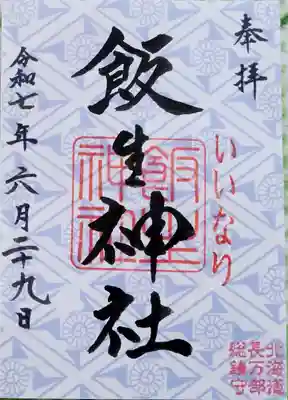 奉拝
いいなり
飯生神社
飯生
神社
令和七年六月二十九日
北海道
長万部
総鎮守